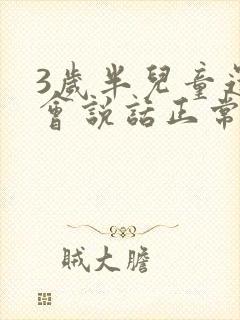 3歲半兒童
會說話正常
賊大膽